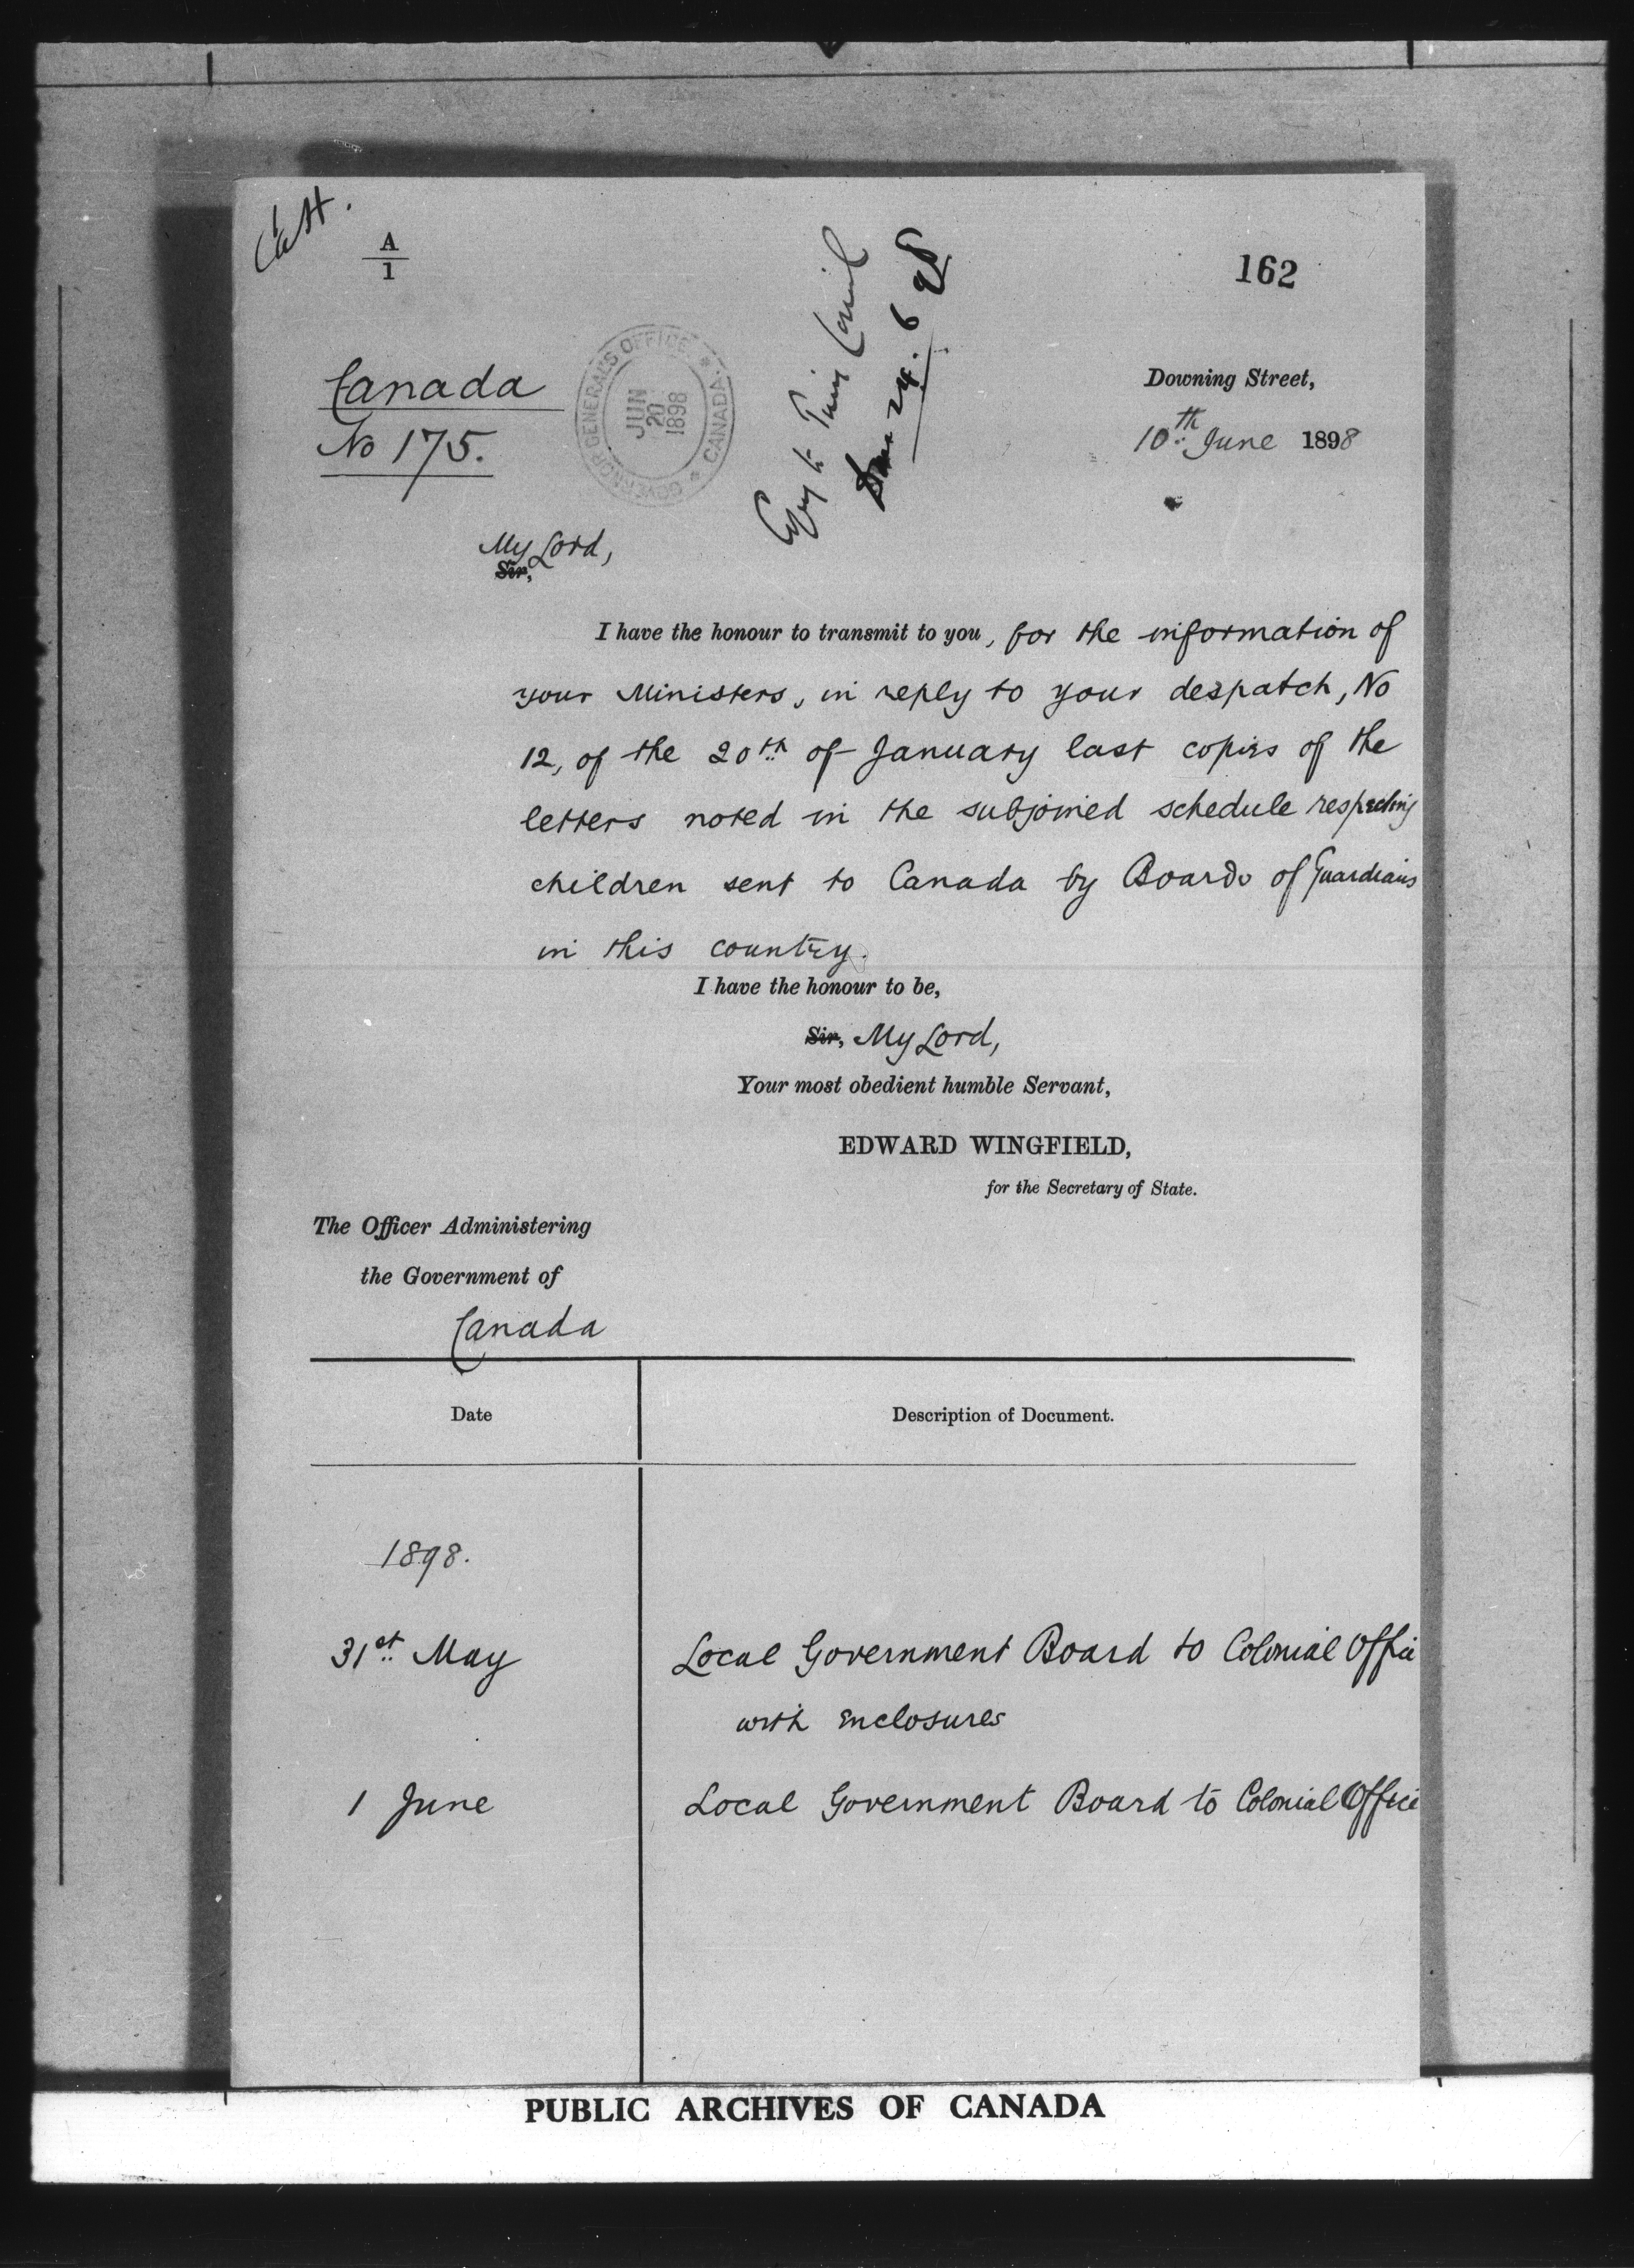 A
1
162
Canada
No 175.
GOVERNOR GENERAL'S OFFICE * CANADA *
JUN
20
1898
Copy to Privy Council
24.6.98
Downing Street,
10th June 1898
My Lord,
Sir,
I have the honour to transmit to you, for the information of
your Ministers, in reply to your despatch, No
12, of the 20th of January last copies of the
letters noted in the subjoined schedule respecting
children sent to Canada by Boards of Guardians
in this country.
I have the honour to be,
Sir, My Lord,
Your most obedient humble Servant,
EDWARD WINGFIELD,
for the Secretary of State.
The Officer Administering
the Government of
Canada
Date
Description of Document.
1898.
31st May
Local Government Board to Colonial Office
with enclosures
1 June
Local Government Board to Colonial Office
PUBLIC ARCHIVES OF CANADA